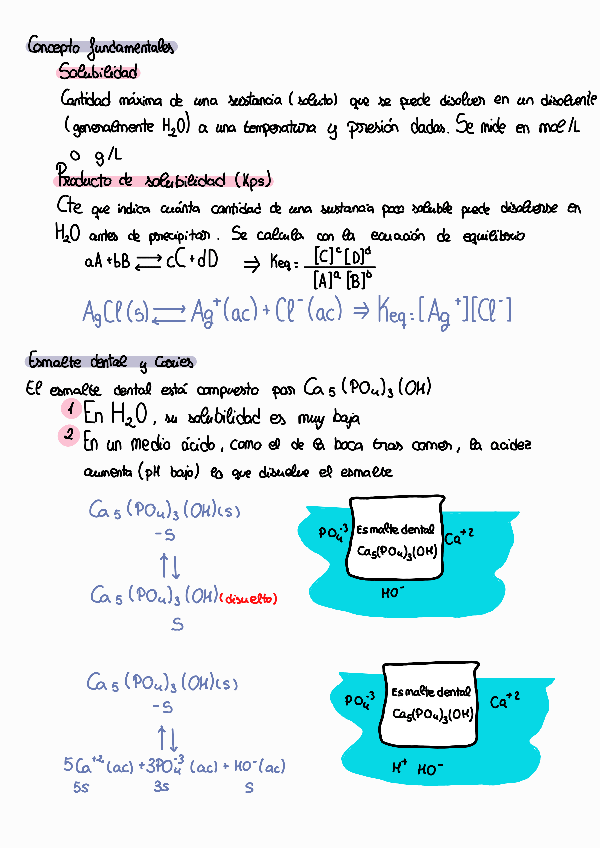 Concepto fundamentales
Solubilidad
Cantidad máxima de una sustancia (soluto) que se puede disolver en un disolvente
(generalmente H₂O) a una temperatura y presión dadas. Se mide en mol/L
o g/L
Producto de solubilidad (Kps)
Cte que indica cuánta cantidad de una sustancia poco soluble puede disolverse en
H₂O antes de precipitar. Se calcula con la ecuación de equilibrio
aA+bB ⇌ cC+dD ⇒ Keq = [C]ᶜ[D]ᵈ / [A]ᵃ[B]ᵇ
AgCl(s) ⇌ Ag⁺(ac) + Cl⁻(ac) ⇒ Keq = [Ag⁺][Cl⁻]
Esmalte dental y Caries
El esmalte dental está compuesto por Ca₅(PO₄)₃(OH)
1 En H₂O, su solubilidad es muy baja
2 En un medio ácido, como el de la boca tras comer, la acidez
aumenta (pH bajo) lo que disuelve el esmalte
Ca₅(PO₄)₃(OH)(s)
-S
↑↓
Ca₅(PO₄)₃(OH)(disuelto)
S
PO₄⁻³
Esmalte dental
Ca₅(PO₄)₃(OH)
Ca⁺²
HO⁻
Ca₅(PO₄)₃(OH)(s)
-S
↑↓
5Ca⁺²(ac) + 3PO₄⁻³(ac) + HO⁻(ac)
5s 3s S
PO₄⁻³
Esmalte dental
Ca₅(PO₄)₃(OH)
Ca⁺²
H⁺ HO⁻